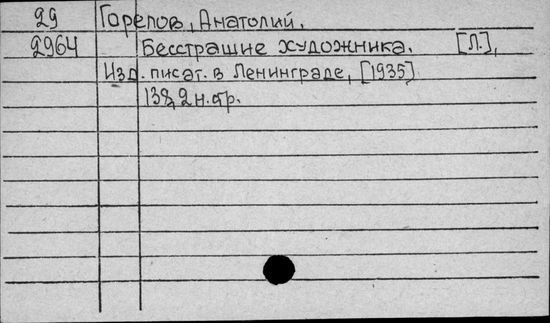 29 Горелов, Анатолий.
2964 Бесстрашие художника. [Л.],
Изд. писат. в Ленинграде, [1935]
138, 2 н. стр.